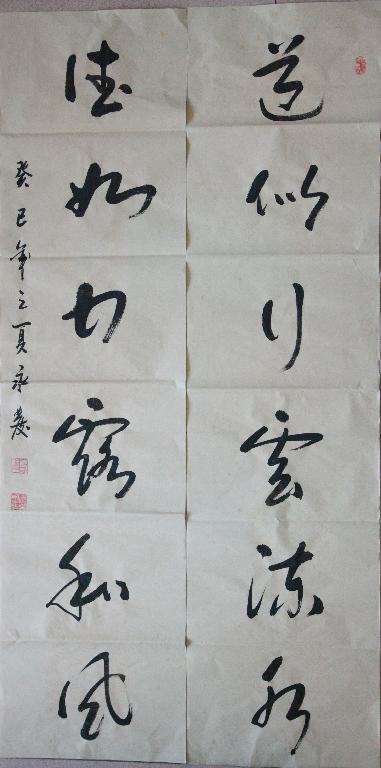 道似行雲流水
德如甘露和風
癸巳年之夏永